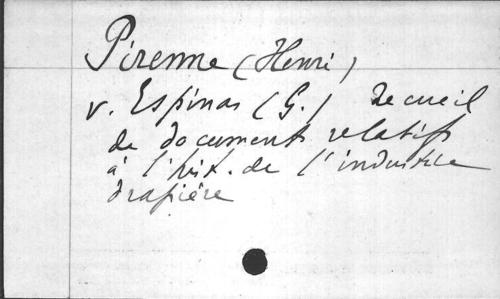 Pirenne (Henri)
v. Espinas (G.) Recueil
de documents relatifs
à l'hist. de l'industrie
drapière